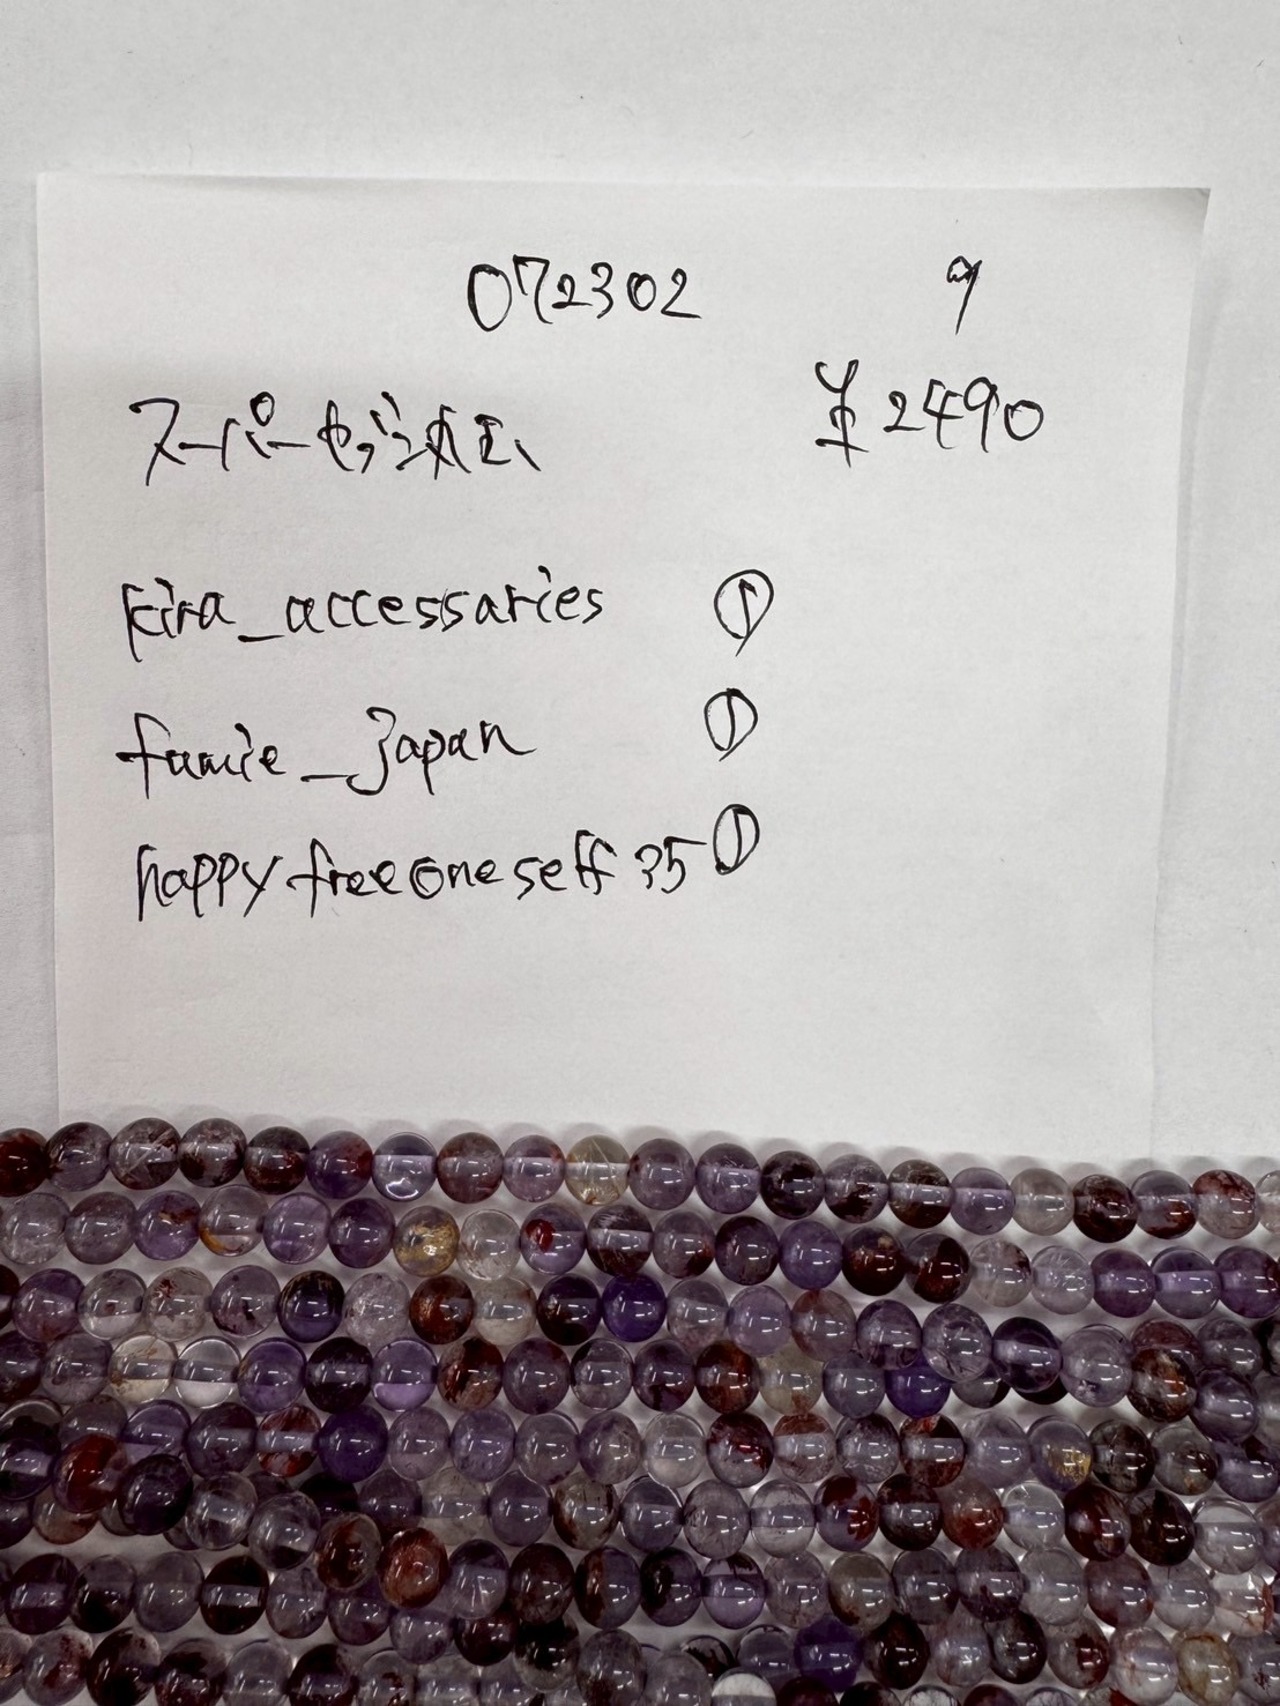 072302 9
スーパーセブン丸玉 ¥2490
kira_accessaries ①
fumie_japan ①
happyfreeoneself35 ①